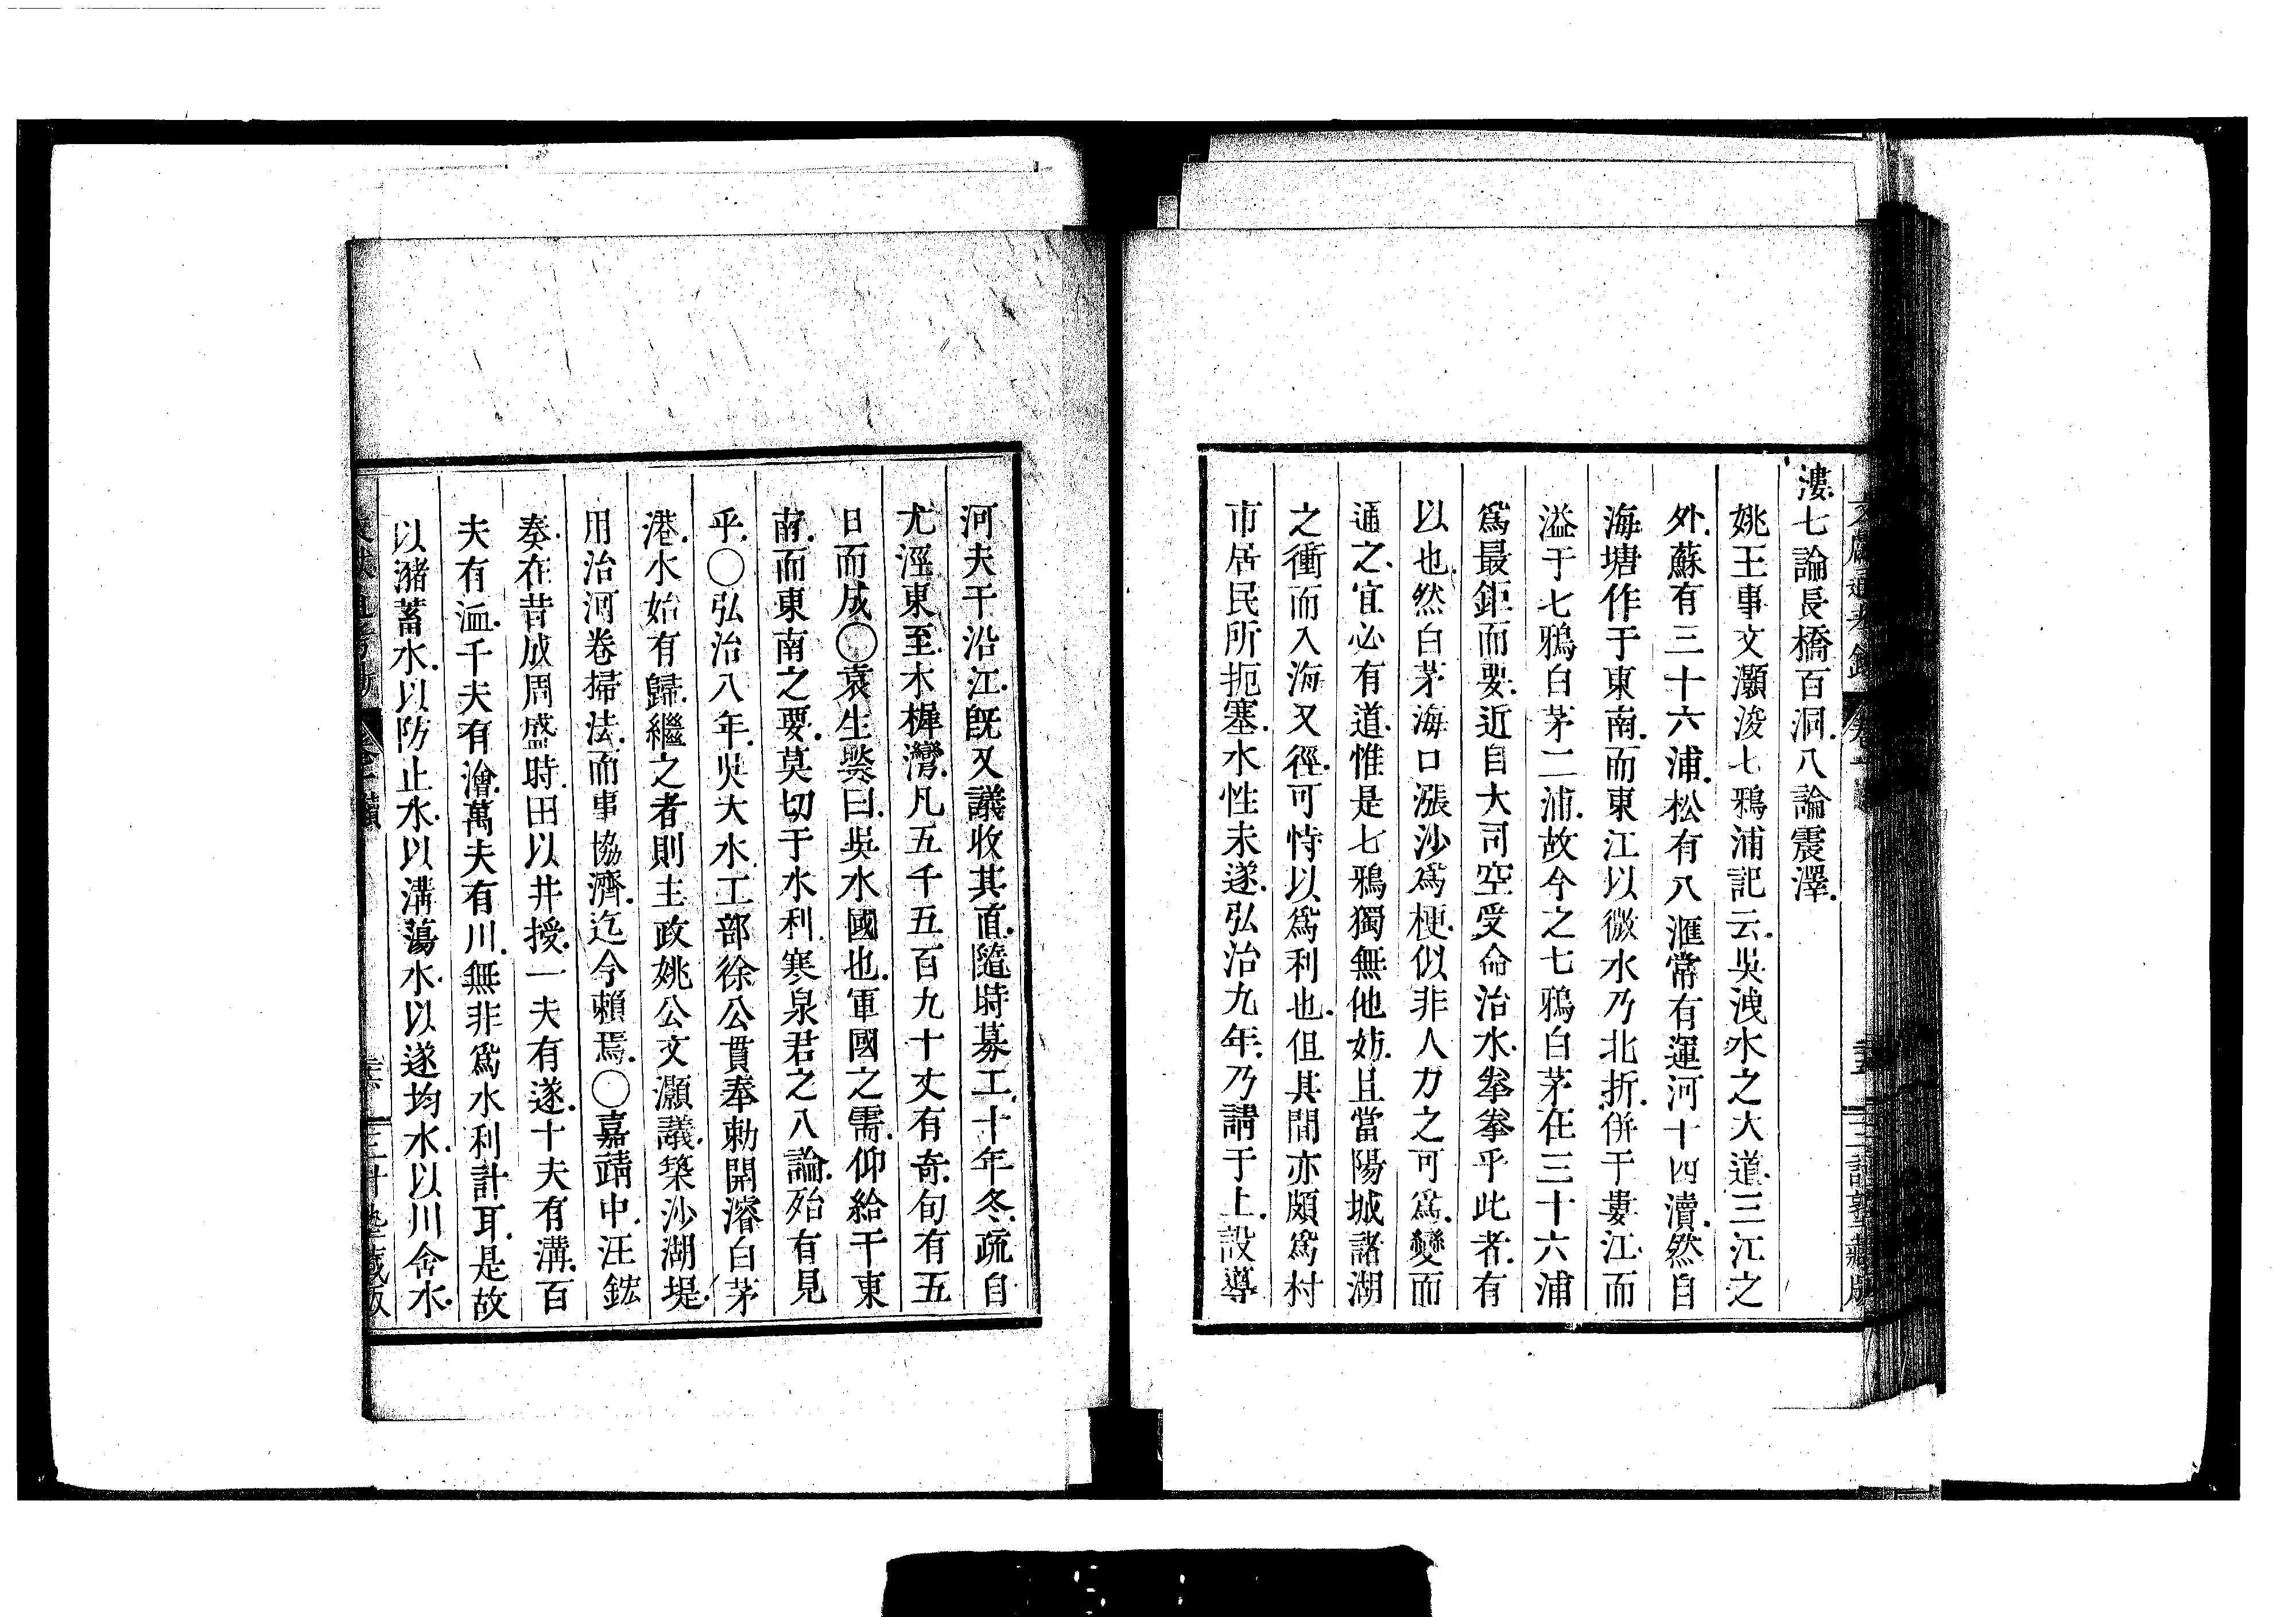 漊七論長橋百洞八論震澤
姚王事文灝浚七鴉浦記云吳洩水之大道三江之
外蘇有三十六浦松有八滙常有運河十四瀆然自
海塘作于東南而東江以微水乃北折併于婁江而
溢于七鴉白茅二浦故今之七鴉白茅在三十六浦
爲最鉅而要近自大司空受命治水拳拳乎此者有
以也然白茅海口漲沙爲梗似非人力之可爲變而
通之宜必有道惟是七鴉獨無他妨且當陽城諸湖
之衝而入海又徑可恃以爲利也但其間亦頗爲村
市居民所扼塞水性未遂弘治九年乃請于上設導
河夫干沿江旣又議收其直隨時募工十年冬疏自
尤涇東至木樨灣凡五千五百九十丈有奇旬有五
日而成〇袁生褧曰吳水國也軍國之需仰給干東
南而東南之要莫切于水利寒泉君之八論殆有見
乎〇弘治八年吳大水工部徐公貫奉勅開濬白茅
港水始有歸繼之者則主政姚公文灝議築沙湖堤
用治河卷掃法而事協濟迄今賴焉〇嘉靖中汪鋐
奏在昔成周盛時田以井授一夫有遂十夫有溝百
夫有洫千夫有澮萬夫有川無非爲水利計耳是故
以瀦蓄水以防止水以溝蕩水以遂均水以川舍水